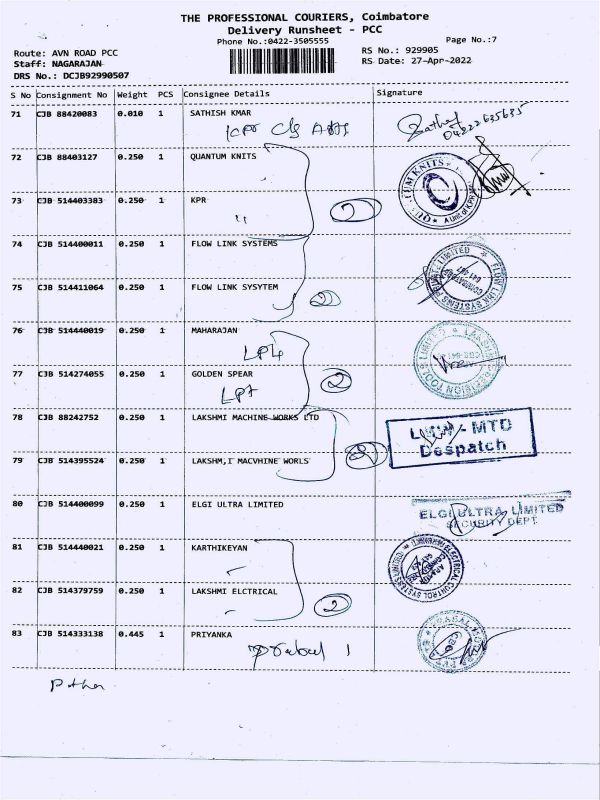 THE PROFESSIONAL COURIERS, Coimbatore
Delivery Runsheet - PCC
Phone No.:0422-3505555
Page No.:7
Route: AVN ROAD PCC
RS No.: 929905
Staff: NAGARAJAN
RS Date: 27-Apr-2022
DRS No.: DCJB92990507
S No Consignment No Weight PCS Consignee Details Signature
71 CJB 88420083 0.010 1 SATHISH KMAR
72 CJB 88403127 0.250 1 QUANTUM KNITS
73 CJB 514403383 0.250 1 KPR
2
74 CJB 514400011 0.250 1 FLOW LINK SYSTEMS
75 CJB 514411064 0.250 1 FLOW LINK SYSYTEM
2
76 CJB 514440019 0.250 1 MAHARAJAN
77 CJB 514274055 0.250 1 GOLDEN SPEAR
2
78 CJB 88242752 0.250 1 LAKSHMI MACHINE WORKS LTD
LMW - MTD
Despatch
79 CJB 514395524 0.250 1 LAKSHM,I MACVHINE WORLS
80 CJB 514400099 0.250 1 ELGI ULTRA LIMITED
ELGI ULTRA LIMITED
SECURITY DEPT.
81 CJB 514440021 0.250 1 KARTHIKEYAN
82 CJB 514379759 0.250 1 LAKSHMI ELCTRICAL
2
83 CJB 514333138 0.445 1 PRIYANKA